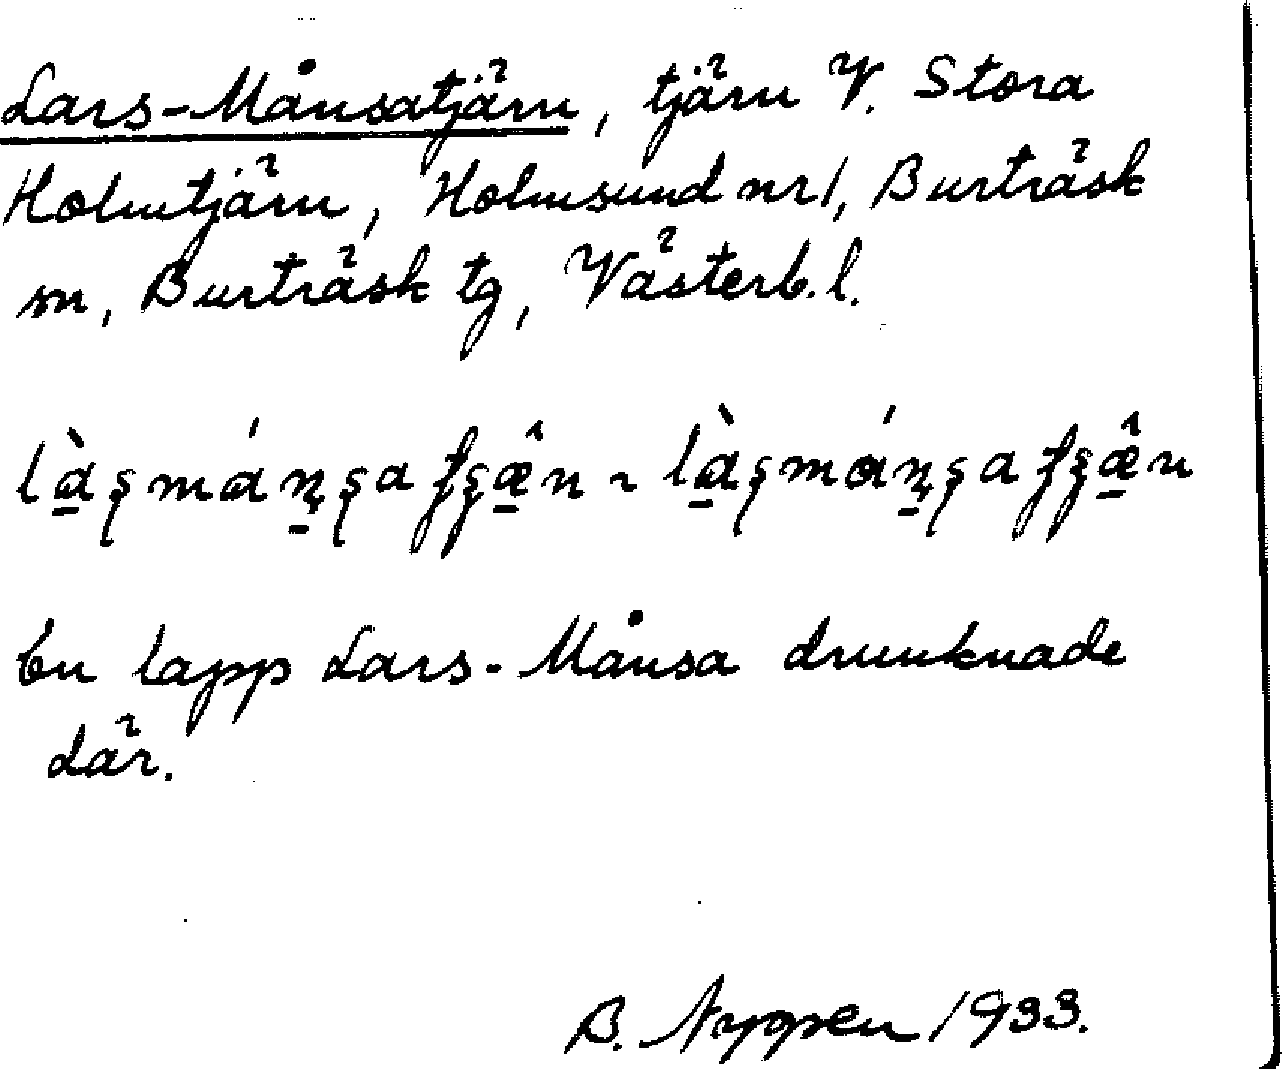 Lars-Månsatjärn, tjärn V. Stora
Holmtjärn, Holmsund nr 1, Burträsk
sn, Burträsk tg, Västerb. l.
En lapp Lars-Månsa drunknade
där.
B. Nygren 1933.